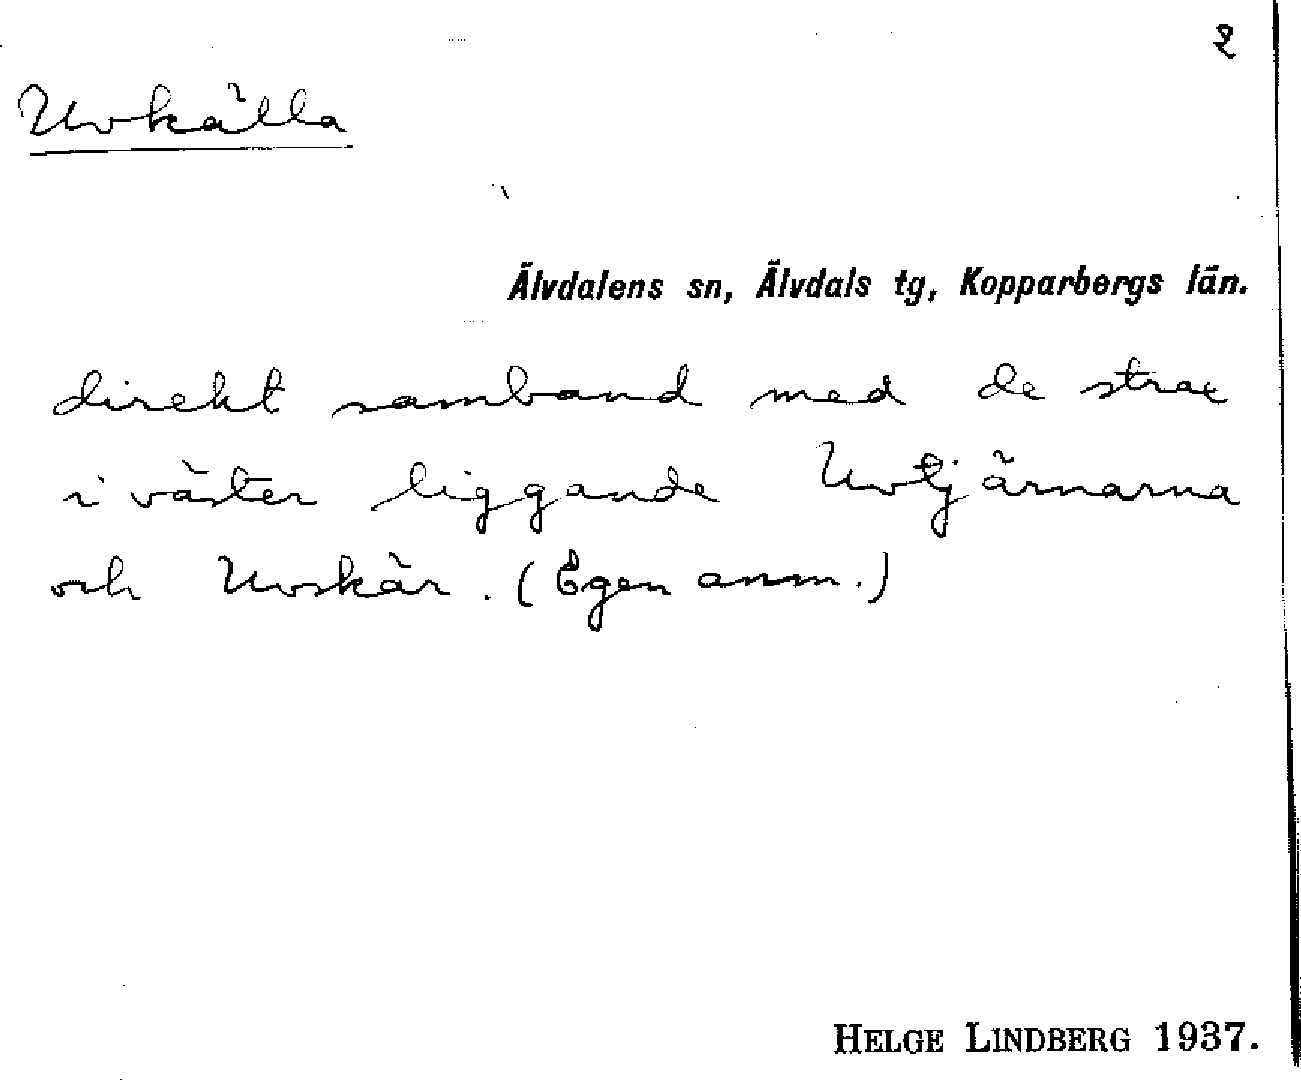 2
Uvkälla
Älvdalens sn, Älvdals tg, Kopparbergs län.
direkt samband med de strax
i väster liggande Uvtjärnarna
och Uvskär. (Egen anm.)
HELGE LINDBERG 1937.